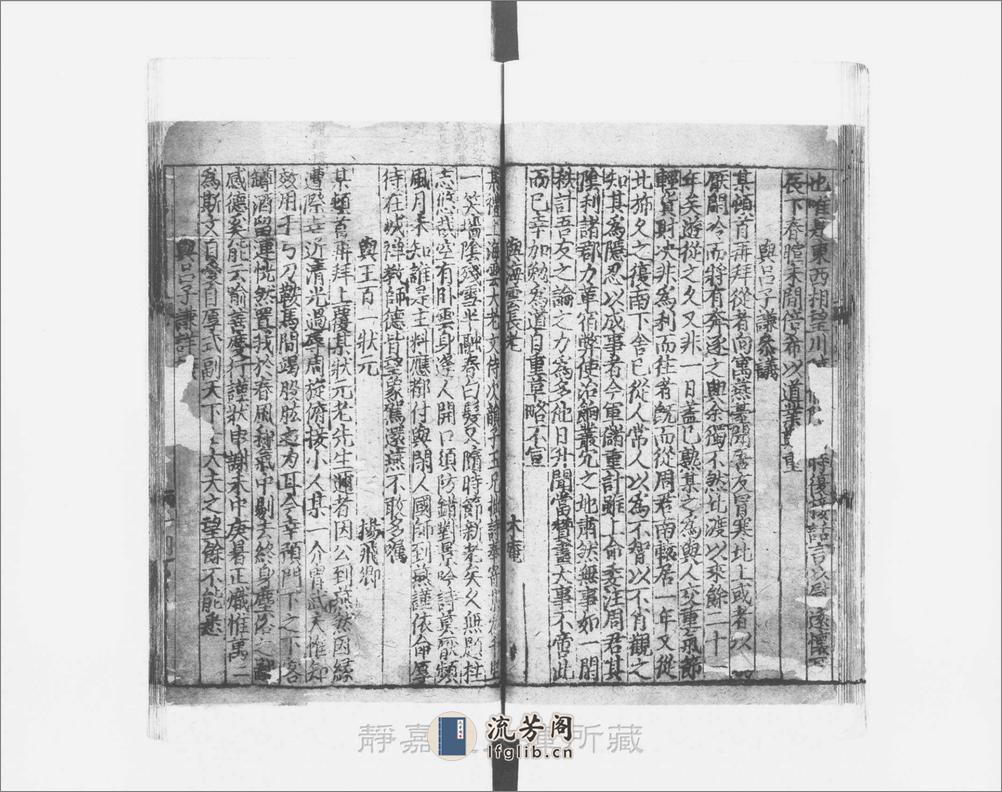 辰下春暄未間倍希以道業
與呂子謙參議
某頓首再拜從者向寓燕臺聞吾友冒寒北上或者以
厭閑冷而將有奔逐之與余獨不然北渡以來餘二十
年矣遊從之久又非一日蓋已熟其之為與人交重氣節
輕貨財決非為利而往者旣而從周君南轅居一年又從
北斾久之復南下舍己從人常人以為不智以不肖觀之
知其為隱忍以成事者今軍儲重計雖上命委注周君其
陘利諸郡力革宿弊使冶叢冗之地肅然無事如一閒
秩計吾友之論之力為多他日升聞當贊畫大事不啻此
而已幸加勉為道自重草略不宣
與海雲長老 木菴
某禮上海雲大老丈侍次
一笑墻陰殘雪半融春白髮又隨時節新老矣久無題柱
志悠哉空有卧雲身逢人開口須防錯對景吟詩莫厭頻
風月未知誰是主料應都付與閑人國師到燕謹依命厚
待在城禪教師德皆望象駕還燕不敢多瀆
與王百一狀元 楊飛卿
某頓首再拜上覆某狀元老先生邇者因公到燕然因緣
遭際密近清光過辱周旋俯接小人某一介胄武夫惟知
效用于弓刀鞍馬間蹋股肱之力耳今幸預門下之下客
罇酒留連恍然置我於春風和氣中剔去終身塵俗之
感德奚能云喻薦蒙行謹狀申謝未中庚暑正熾惟萬二
為斯文自愛自厚式副天下士大夫之望餘不能悉
與呂子謙詳
靜嘉堂文庫所藏
流芳阁
lfglib.cn